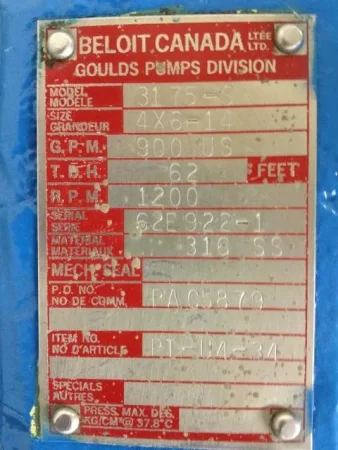 BELOIT CANADA LTÉE LTD.
GOULDS PUMPS DIVISION
MODEL MODÈLE 3175-S
SIZE GRANDEUR 4X6-
G.P.M. 900 US
T.D.H. 62 FEET
R.P.M. 1200
SERIAL SÉRIE 62E922-1
MATERIAL MATÉRIAUX 316 SS
MECH. SEAL
P.O. NO. NO DE COMM. PA05879
ITEM NO. NO D'ARTICLE PI-U4-34
SPECIALS AUTRES
PRESS. MAX. DES.
KG/CM² @ 37.8°C